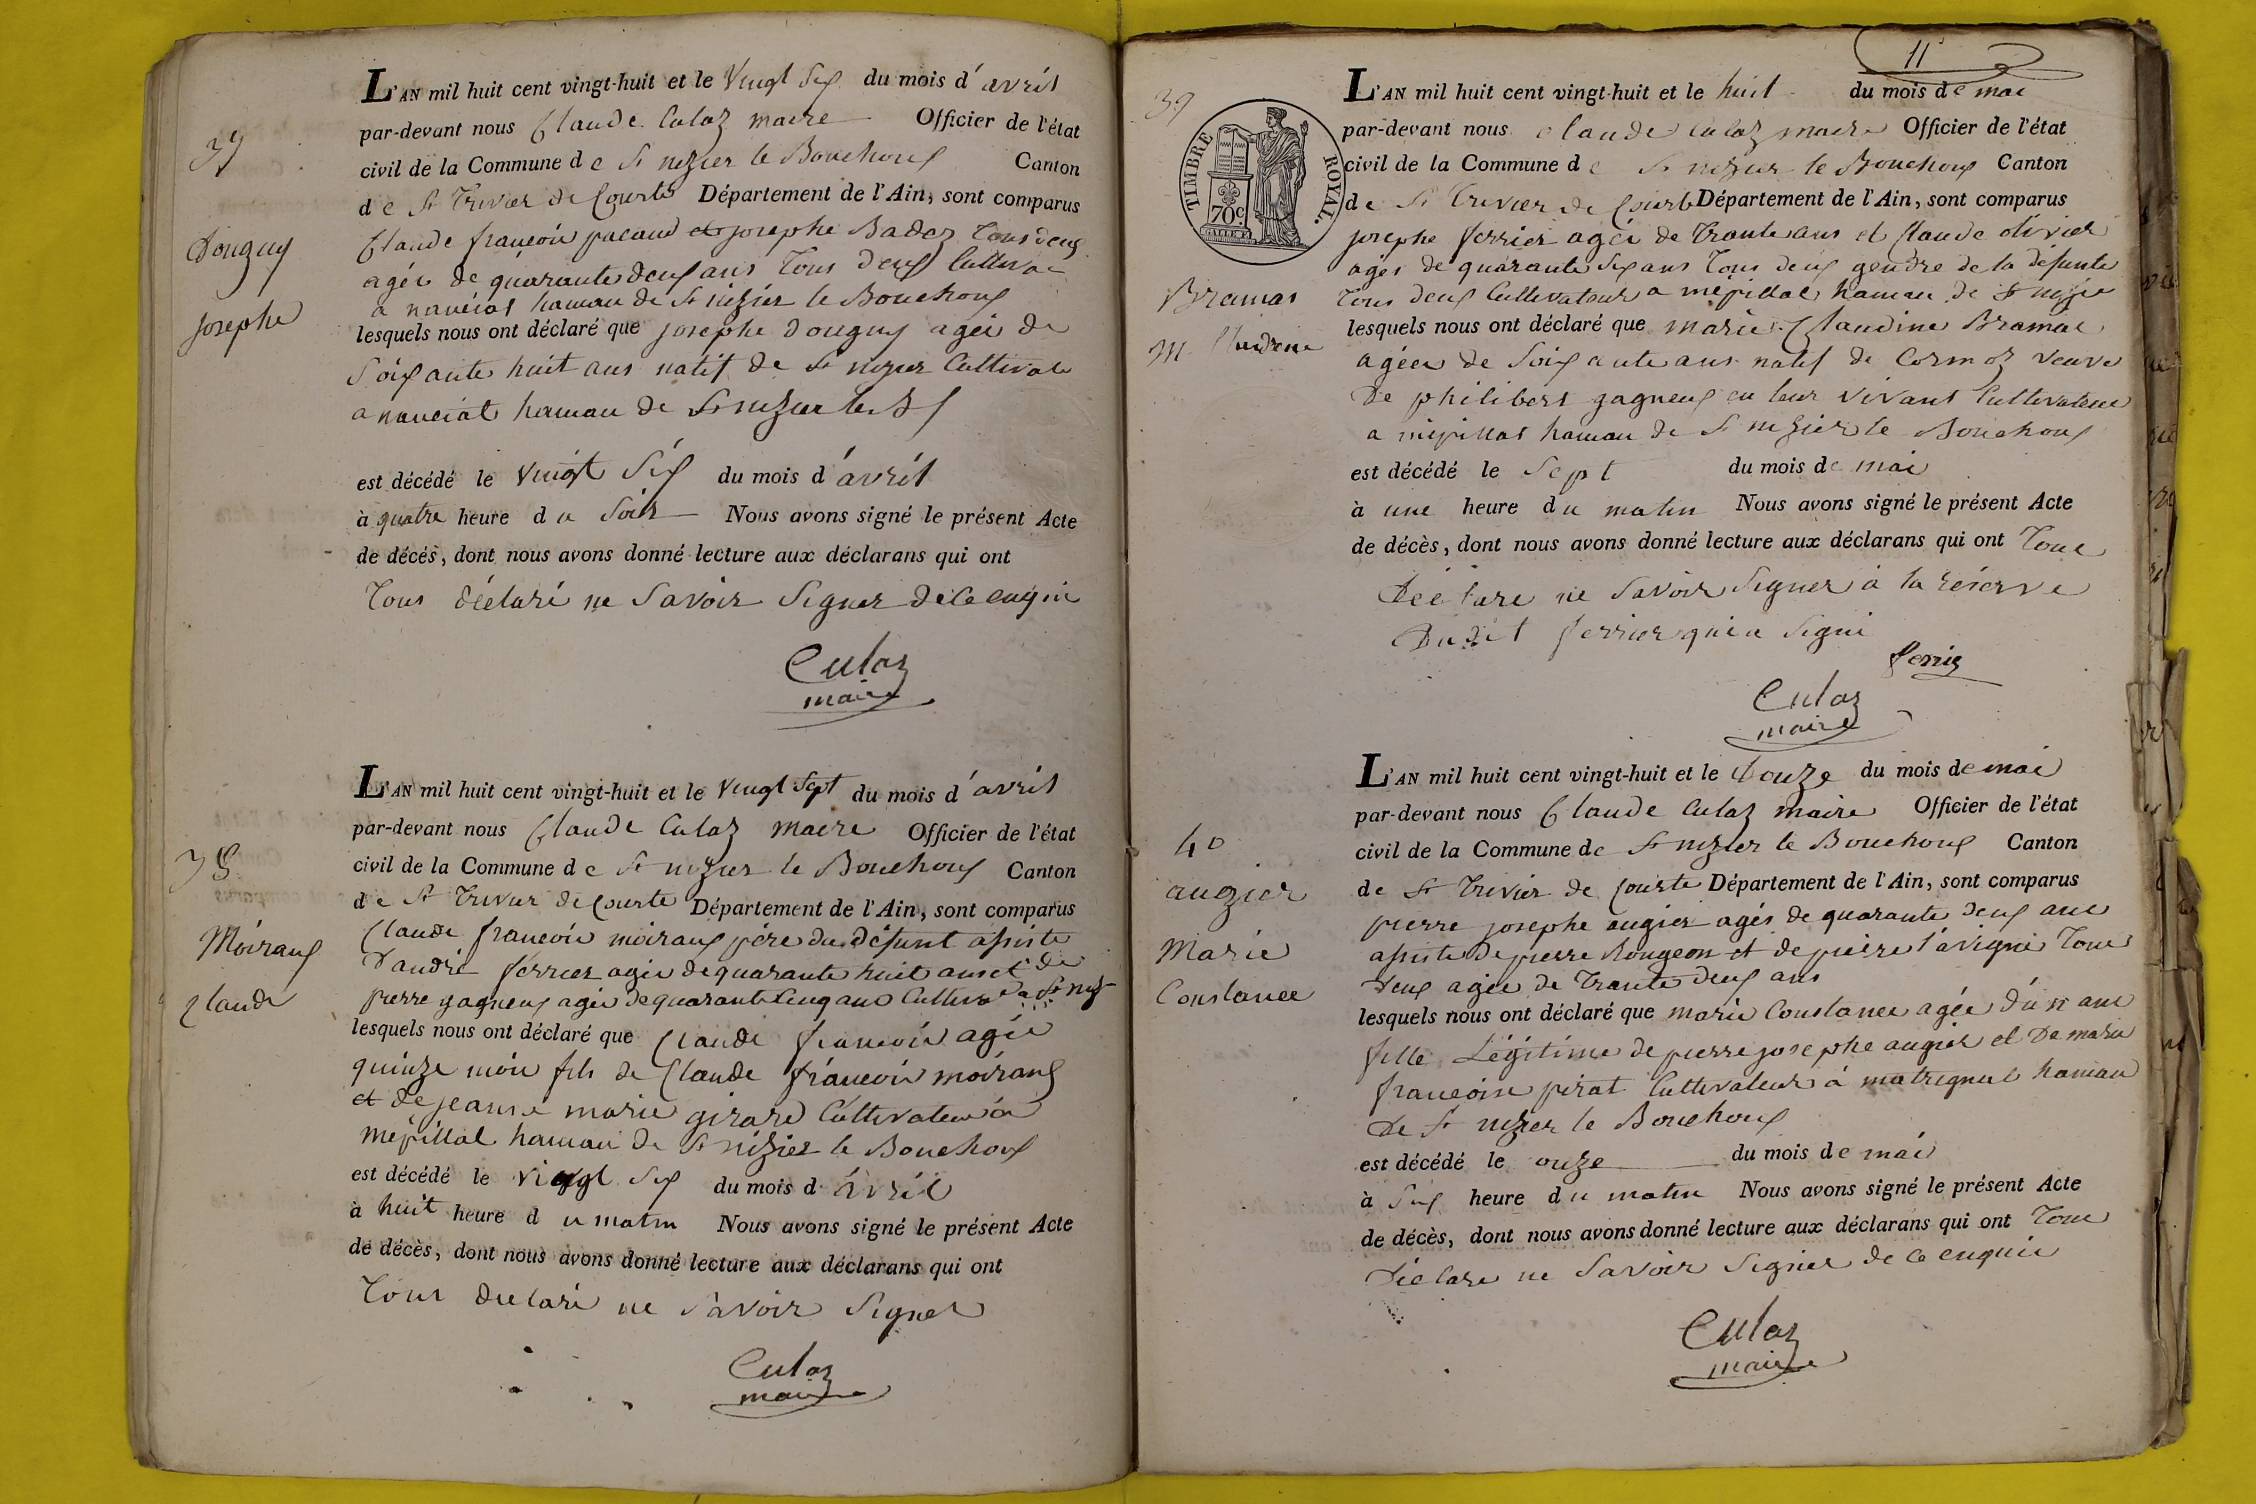 37
Douguy
josephe
L'AN mil huit cent vingt-huit et le vingt six du mois d'avril
par-devant nous Claude Culaz maire Officier de l'état
civil de la Commune de St nizier le Bouchoux Canton
de St Trivier de Courte Département de l'Ain, sont comparus
Claude francois pacaud et josephe Badez Tous deux
agée de quarante deux ans Tous deux Cultiva
a nanciat hamau de St nizier le Bouchoux
lesquels nous ont déclaré que josephe douguy agée de
Soixante huit ans natif de St nizier Cultivate
a nanciat hamau de St nizier le B
est décédé le vingt Six du mois d'avril
à quatre heure du Soir Nous avons signé le présent Acte
de décès, dont nous avons donné lecture aux déclarans qui ont
Tous déclaré ne Savoir Signer de ce enquie
Culaz
maire
38
Moiraux
Claude
L'AN mil huit cent vingt-huit et le vingt Sept du mois d'avril
par-devant nous Claude Culaz maire Officier de l'état
civil de la Commune de St nizier le Bouchoux Canton
de St Trivier de Courte Département de l'Ain, sont comparus
Claude francois moiraux père du défunt assiste
D'andré ferrier agée de quarante huit ans et de
pierre gagneux agée de quarante Cinq ans Cultiva a St niz
lesquels nous ont déclaré que Claude francois agée
quinze mois fils de Claude francois moiraux
et de jeanne marie girard Cultivateur a
mépillat hamau de St nizier le Bouchoux
est décédé le vingt Six du mois d'avril
à huit heure du matin Nous avons signé le présent Acte
de décès, dont nous avons donné lecture aux déclarans qui ont
Tous declaré ne Savoir Signer
Culaz
maire
11
39
TIMBRE ROYAL.
70c
Bramas
M. Claudine
L'AN mil huit cent vingt-huit et le huit du mois de mai
par-devant nous Claude Culaz maire Officier de l'état
civil de la Commune de St nizier le Bouchoux Canton
de St Trivier de Courte Département de l'Ain, sont comparus
josephe ferrier agée de Trante ans et Claude olivier
agés de quarante Six ans Tous deux gendre de la defunte
Tous deux Cultivateur a mépillat hamau de St nizie
lesquels nous ont déclaré que marie Claudine Bramas
agée de Soixante ans natif de Cormoz veuve
De philibert gagneux en leur vivant Cultivateur
a mépillat hamau de St nizier le Bouchoux
est décédé le Sept du mois de mai
à une heure du matin Nous avons signé le présent Acte
de décès, dont nous avons donné lecture aux déclarans qui ont Tous
Déclaré ne Savoir Signer à la réserve
Dudit ferrier qui a Signé
ferrier
Culaz
maire
40
augier
Marie
Constance
L'AN mil huit cent vingt-huit et le Douze du mois de mai
par-devant nous Claude Culaz maire Officier de l'état
civil de la Commune de St nizier le Bouchoux Canton
de St Trivier de Courte Département de l'Ain, sont comparus
pierre josephe augier agés de quarante deux ans
assiste De pierre Rongeon et de pierre lavigne Tous
deux agée de Trante deux ans
lesquels nous ont déclaré que marie Constance agée d'un an
fille Légitime de pierre josephe augier et De marie
francoise pirat Cultivateur à matrignat hamau
De St nizier le Bouchoux
est décédé le onze du mois de mai
à Six heure du matin Nous avons signé le présent Acte
de décès, dont nous avons donné lecture aux déclarans qui ont Tous
Déclaré ne Savoir Signer de ce enquie
Culaz
maire